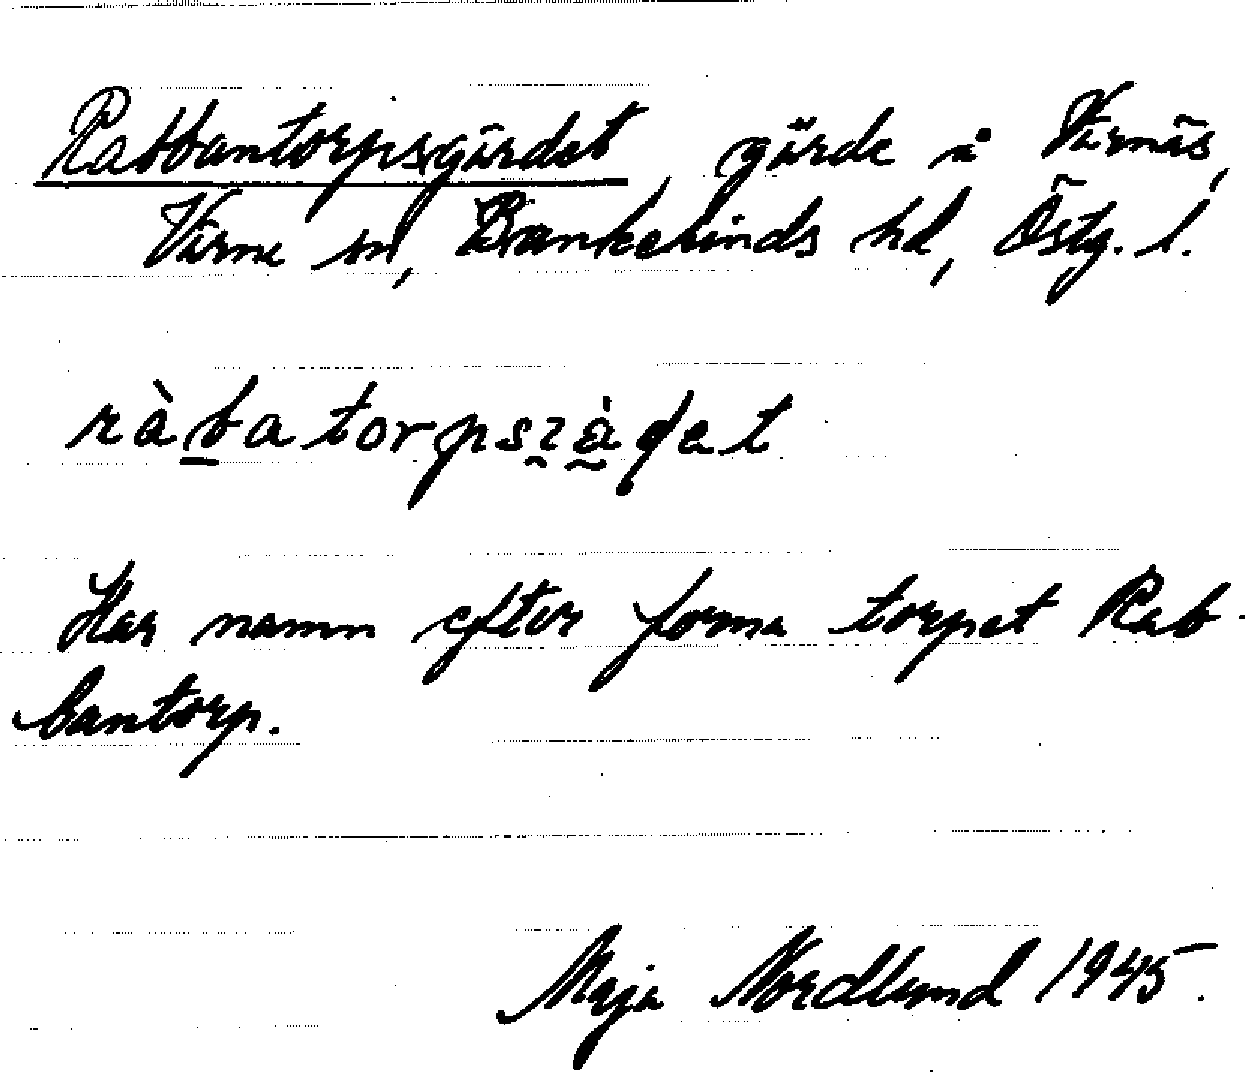 Rabbantorpsgärdet, gärde å Värnäs,
Värne sn, Bankekinds hd, Östg. l.
ràbatorpsɀàꞔet
Har namn efter forna torpet Rab-
bantorp.
Maja Nordlund 1945.